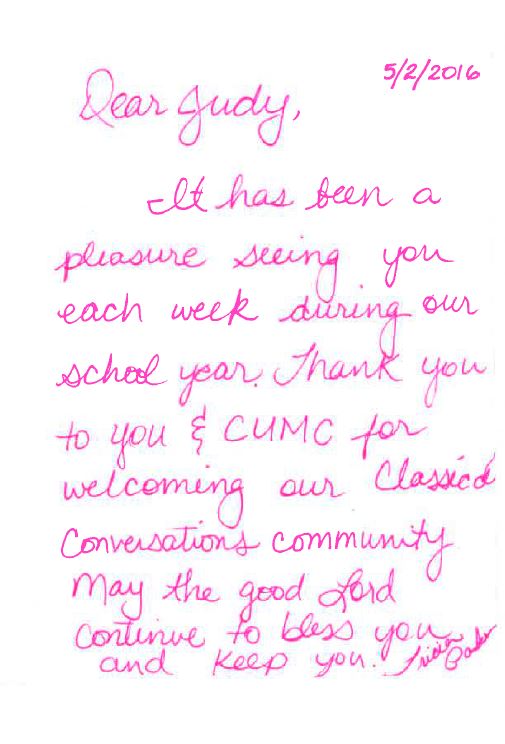 5/2/2016
Dear Judy,
It has been a
pleasure seeing you
each week during our
school year. Thank you
to you & CUMC for
welcoming our Classical
Conversations community
May the good Lord
continue to bless you
and keep you. Tricia